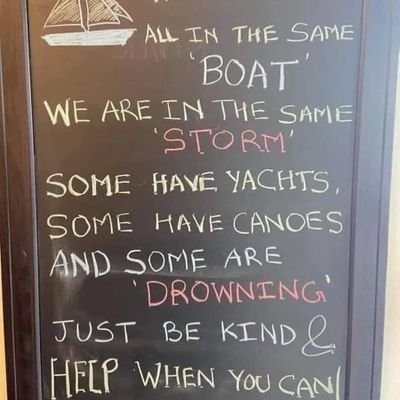 ALL IN THE SAME
'BOAT'
WE ARE IN THE SAME
'STORM'
SOME HAVE YACHTS,
SOME HAVE CANOES
AND SOME ARE
'DROWNING'
JUST BE KIND &
HELP WHEN YOU CAN!